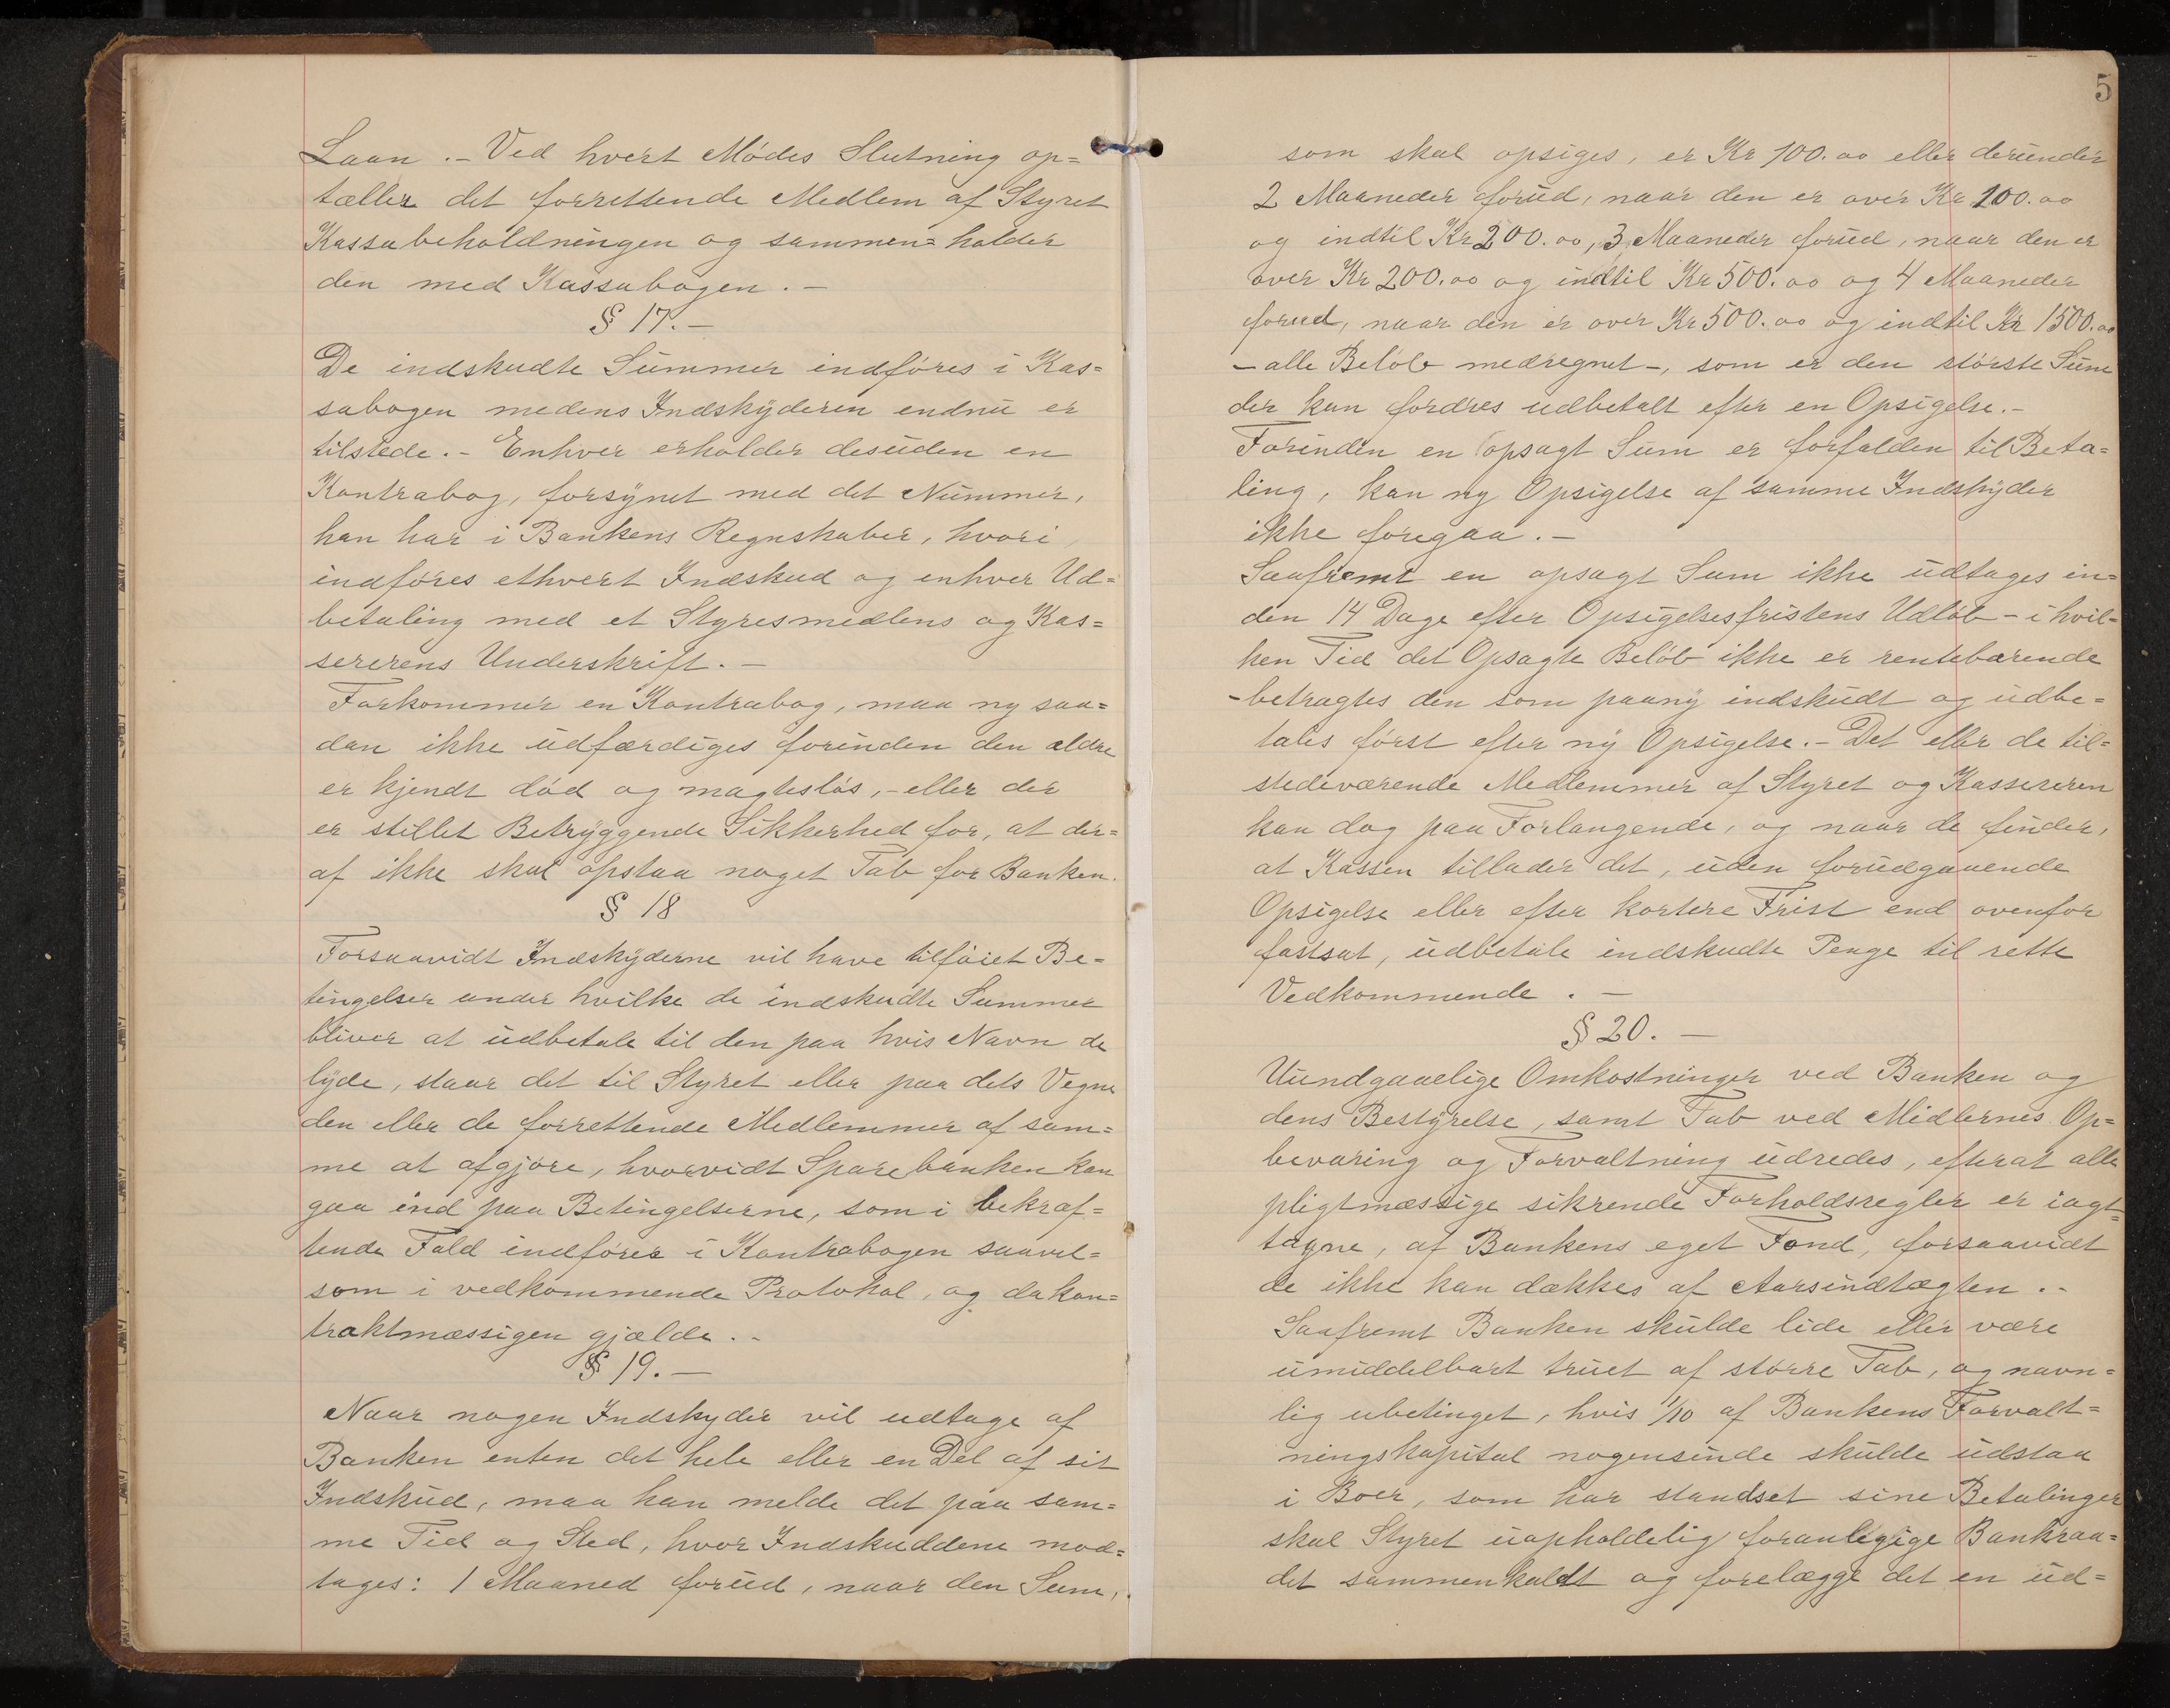 Laan .- Ved hvert Mødes Slutning op=
tæller det forrettende Medlem af Styret
Kassabeholdningen og sammen=holder
den med Kassabogen. -
§ 17. -
De indskudte Summer indføres i Kas=
sabogen medens Indskyderen endnu er
tilstede. - Enhver erholder desuden en
Kontrabog, forsynet med det Nummer,
han har i Bankens Regnskaber, hvori
indføres ethvert Indskud og enhver Ud=
betaling med et Styresmedlems og Kas=
sererens Underskrift. -
Forkommer en Kontrabog, maa ny saa=
dan ikke udfærdiges forinden den ældre
er kjendt død og magtesløs, - eller der
er stillet Betryggende Sikkerhed for, at der=
af ikke skal opstaa noget Tab for Banken.
§ 18
Forsaavidt Indskyderne vil have tilføiet Be=
tingelser under hvilke de indskudte Summer
bliver at udbetale til den paa hvis Navn de
lyde, staar det til Styret eller paa dets Vegne
den eller de forrettende Medlemmer af sam=
me at afgjøre, hvorvidt Sparebanken kan
gaa ind paa Betingelserne, som i bekræf=
tende Fald indføres i Kontrabogen saavel=
som i vedkommende Protokol, og da kon=
traktmæssigen gjælde. -
§ 19. -
Naar nogen Indskyder vil udtage af
Banken enten det hele eller en Del af sit
Indskud, maa han melde det paa sam=
me Tid og Sted, hvor Indskuddene mod=
tages: 1 Maaned forud, naar den Sum,
5
som skal opsiges, er Kr 100.00 eller derunder
2 Maaneder forud, naar den er over Kr 100.00
og indtil Kr 200.00, 3 Maaneder forud, naar den er
over Kr 200.00 og indtil Kr 500.00 og 4 Maaneder
forud, naar den er over Kr 500.00 og indtil Kr 1500.00
- alle Beløb medregnet -, som er den største Sum
der kan fordres udbetalt efter en Opsigelse. -
Forinden en opsagt Sum er forfalden til Beta=
ling, kan ny Opsigelse af samme Indskyder
ikke foregaa. -
Saafremt en opsagt Sum ikke udtages in=
den 14 Dage efter Opsigelsesfristens Udløb - i hvil=
ken Tid det Opsagte Beløb ikke er rentebærende
- betragtes den som paany indskudt og udbe=
tales først efter ny Opsigelse. - Det eller de til=
stedeværende Medlemmer af Styret og Kassereren
kan dog paa Forlangende, og naar de finder,
at Kassen tillader det, uden forudgaaende
Opsigelse eller efter kortere Frist end ovenfor
fastsat, udbetale indskudte Penge til rette
Vedkommende. -
§ 20. -
Uundgaaelige Omkostninger ved Banken og
dens Bestyrelse, samt Tab ved Midlernes Op=
bevaring og Forvaltning udredes, efterat alle
pligtmæssige sikrende Forholdsregler er iagt=
tagne, af Bankens eget Fond, forsaavidt
de ikke kan dækkes af Aarsindtægten. -
Saafremt Banken skulde lide eller være
umiddelbart truet af større Tab, og navn=
lig ubetinget, hvis 1/10 af Bankens Forvalt=
ningskapital nogensinde skulde udstaa
i Boer, som har standset sine Betalinger
skal Styret uopholdelig foranlegige Bankraa=
det sammenkaldt og forelægge det en ud=